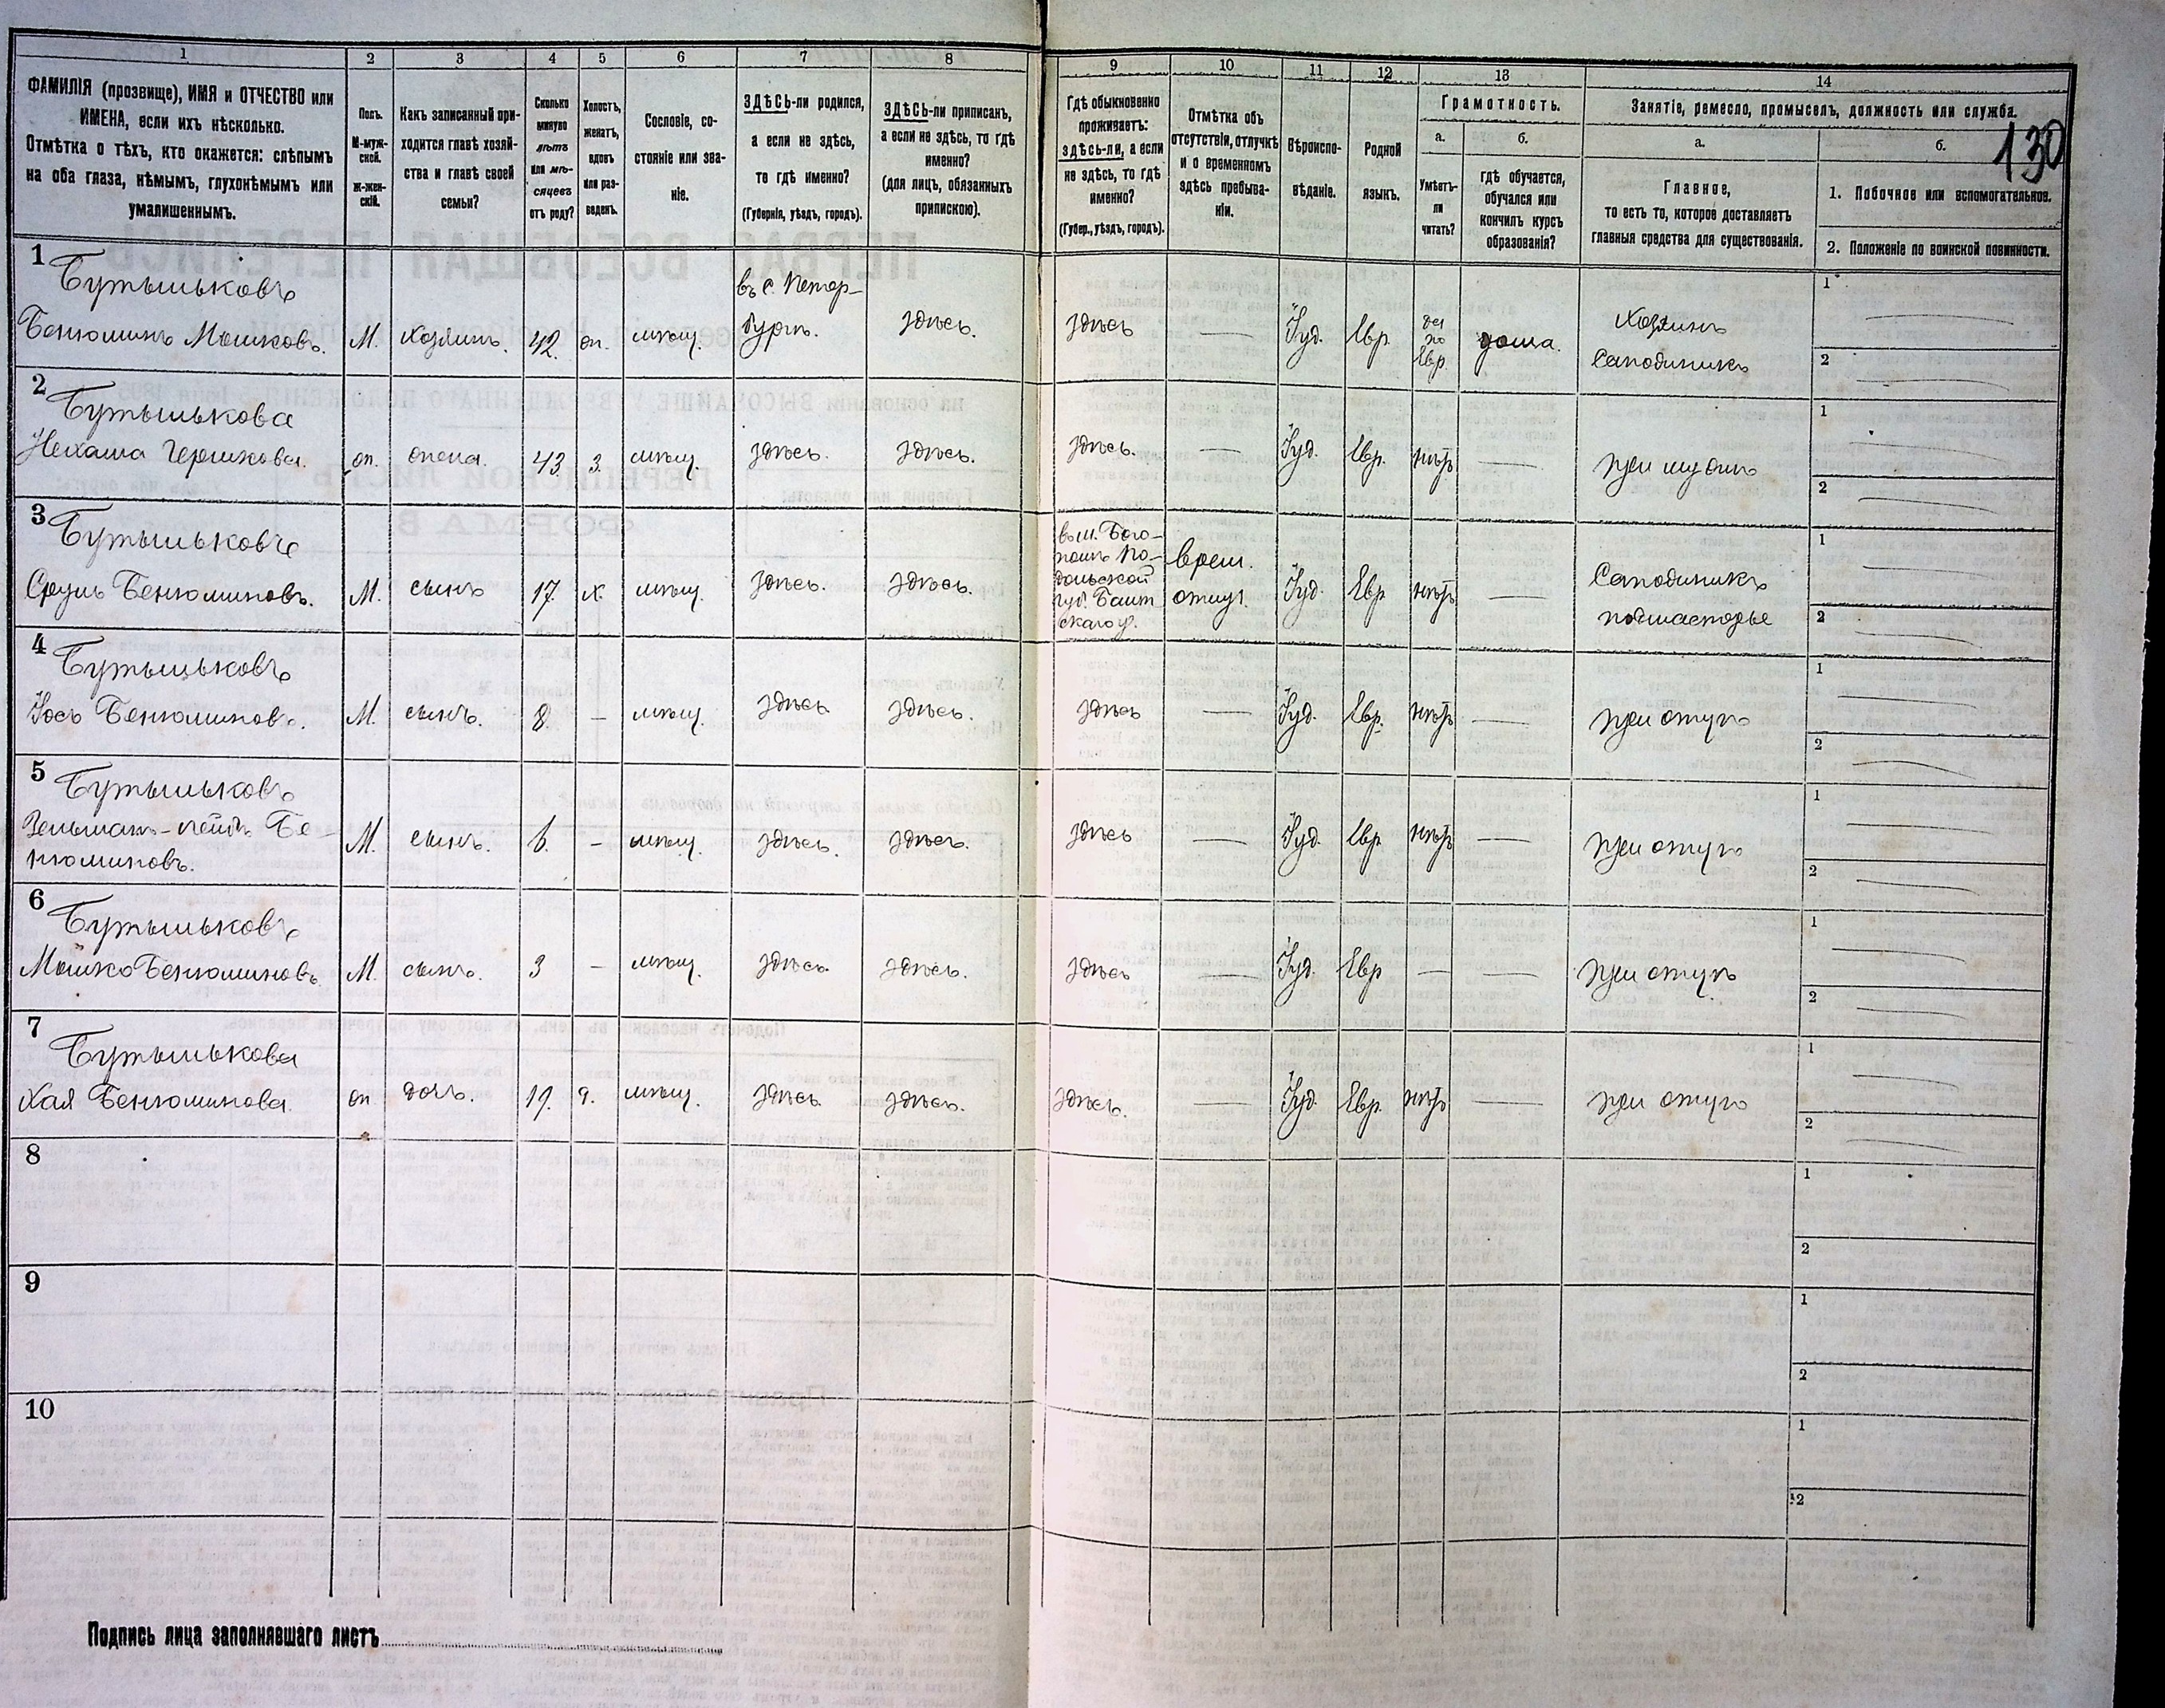 1 2 3 4 5 6 7 8 9 10 11 12 13 14
ФАМИЛІЯ (прозвище), ИМЯ и ОТЧЕСТВО или
ИМЕНА, если ихъ нѣсколько.
Отмѣтка о тѣхъ, кто окажется: слѣпымъ
на оба глаза, нѣмымъ, глухонѣмымъ или
умалишеннымъ.
Полъ.
М-муж-
ской.
Ж-жен-
скій.
Какъ записанный при-
ходится главѣ хозяй-
ства и главѣ своей
семьи?
Сколько
минуло
лѣтъ
или мѣ-
сяцевъ
отъ роду?
Холостъ,
женатъ,
вдовъ
или раз-
веденъ.
Сословіе, со-
стояніе или зва-
ніе.
ЗДѢСЬ-ли родился,
а если не здѣсь,
то гдѣ именно?
(Губернія, уѣздъ, городъ).
ЗДѢСЬ-ли приписанъ,
а если не здѣсь, то гдѣ
именно?
(для лицъ, обязанныхъ
припискою).
Гдѣ обыкновенно
проживаетъ:
здѣсь-ли, а если
не здѣсь, то гдѣ
именно?
(Губер., уѣздъ, городъ).
Отмѣтка объ
отсутствіи, отлучкѣ
и о временномъ
здѣсь пребыва-
ніи.
Вѣроиспо-
вѣданіе.
Родной
языкъ.
Грамотность.
а.
Умѣетъ-
ли
читать?
б.
гдѣ обучается,
обучался или
кончилъ курсъ
образованія?
Занятіе, ремесло, промыселъ, должность или служба.
а.
Главное,
то есть то, которое доставляетъ
главныя средства для существованія.
б.
130
1. Побочное или вспомогательное.
2. Положеніе по воинской повинности.
1
Бутыльковъ
Бенюминъ Мошковъ. М. хозяинъ. 42. мѣщ.
въ С. Петер-
бургѣ. здѣсь. здѣсь — Іуд. Евр
да
по
Евр дома.
Хозяинъ
Сапожникъ
1
2
2
Бутылькова
Нехама Гершкова. 43. 3. мѣщ. здѣсь. здѣсь. здѣсь. — Іуд. Евр. нѣтъ — при мужѣ
1
2
3
Бутыльковъ
Сруль Бенюминовъ. М. сынъ 17. х. мѣщ. здѣсь. здѣсь.
въ м. Бого-
полѣ По-
дольской
губ. Балт
скаго у.
врем.
отлуч. Іуд. Евр нѣтъ —
Сапожникъ
подмастерье
1
2
4
Бутыльковъ
Іось Бенюминовъ. М. сынъ. 8. — мѣщ. здѣсь здѣсь. здѣсь — Іуд. Евр. нѣтъ — при отцѣ
1
2
5
Бутыльковъ
Зельманъ-Лейбъ Бе-
нюминовъ. М. сынъ. 6. — мѣщ. здѣсь. здѣсь. здѣсь — Іуд. Евр нѣтъ — при отцѣ
1
2
6
Бутыльковъ
Мошко Бенюминовъ М. сынъ. 3 — мѣщ. здѣсь здѣсь. здѣсь — Іуд. Евр — — при отцѣ
1
2
7
Бутылькова
Хая Бенюминова. дочь. 19. мѣщ. здѣсь здѣсь. здѣсь. — Іуд. Евр. нѣтъ — при отцѣ
1
2
8
1
2
9
1
2
10
1
2
Подпись лица заполнявшаго листъ